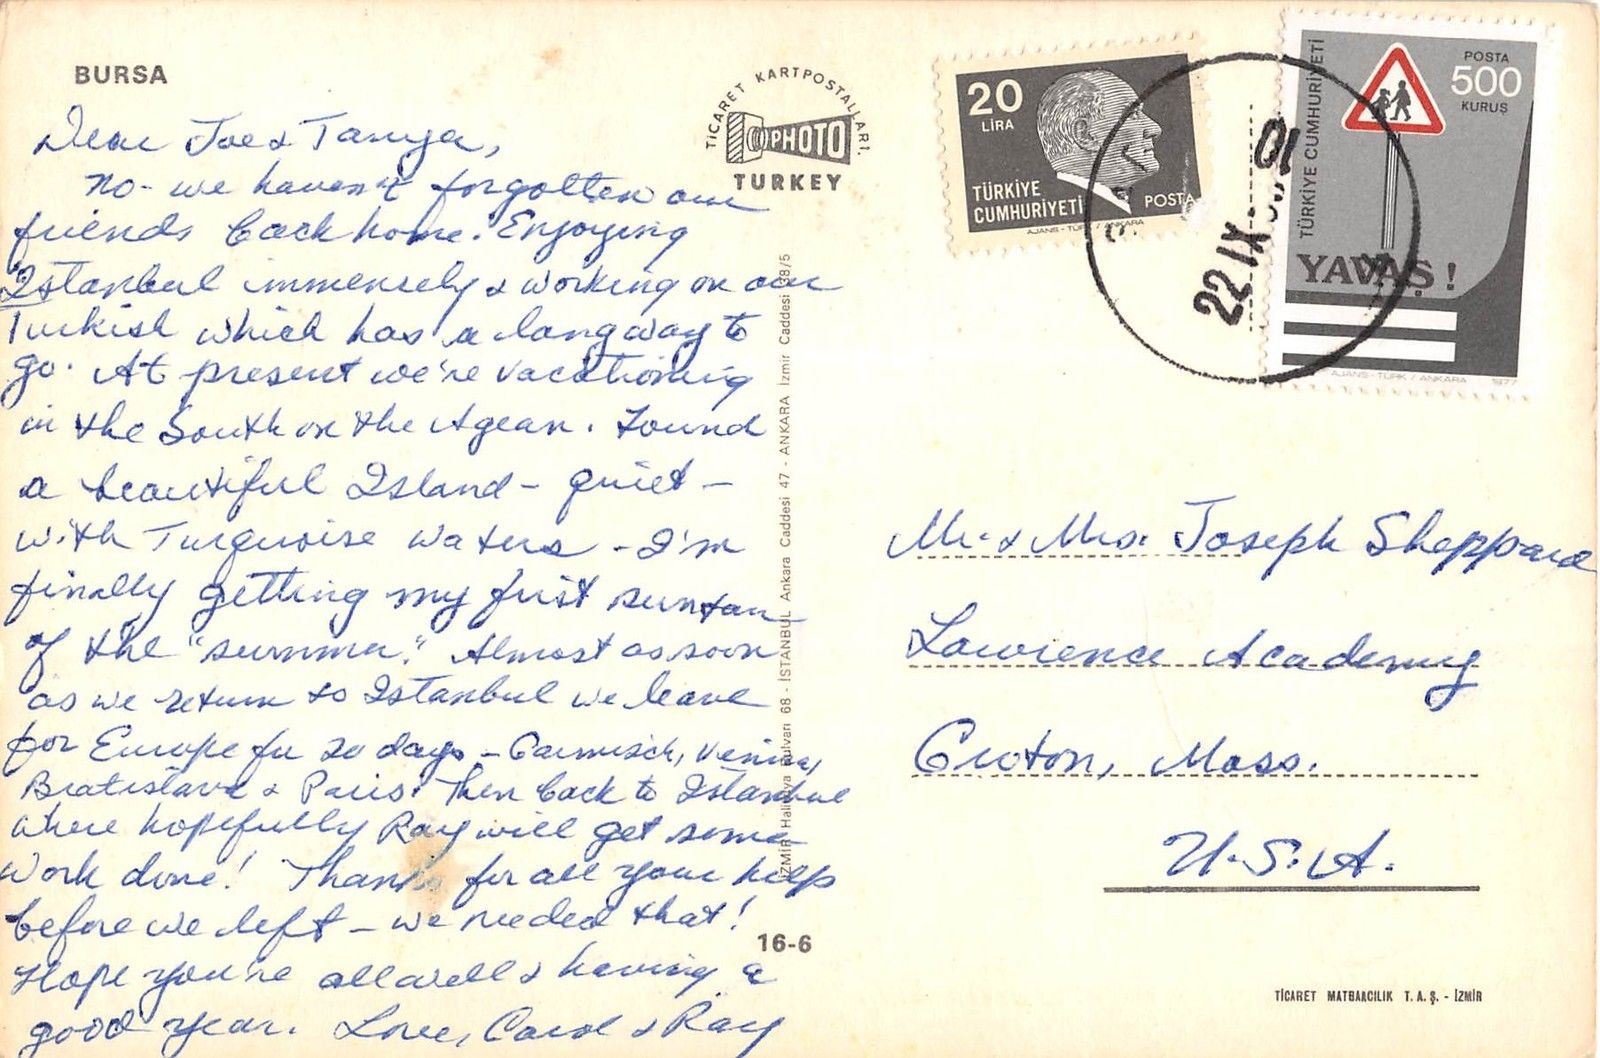 BURSA
Dear Joe & Tanya,
no - we haven't forgotten our
friends back home. Enjoying
Istanbul immensely & working on our
Turkish which has a long way to
go. At present we're vacationing
in the South on the Agean. Found
a beautiful Island - quiet -
with Turquoise waters - I'm
finally getting my first suntan
of the "summer." Almost as soon
as we return to Istanbul we leave
for Europe for 20 days - Garmisch, Vienna,
Bratislava & Paris. Then back to Istanbul
where hopefully Ray will get some
work done! Thanks for all your help
before we left - we needed that!
Hope you're all well & having a
good year. Love, Carol & Ray
TİCARET KARTPOSTALLARI.
PHOTO
TURKEY
İZMİR Halit Ziya Bulvarı 68 - İSTANBUL Ankara Caddesi 47 - ANKARA İzmir Caddesi 38/5
16-6
20
LİRA
TÜRKİYE
CUMHURİYETİ
POSTA
AJANS - TÜRK / ANKARA
22.IX
01
TÜRKİYE CUMHURİYETİ
POSTA
500
KURUŞ
YAVAŞ!
AJANS - TÜRK / ANKARA 1977
Mr. & Mrs. Joseph Sheppard
Lawrence Academy
Groton, Mass.
U.S.A.
TİCARET MATBAACILIK T.A.Ş. - İZMİR